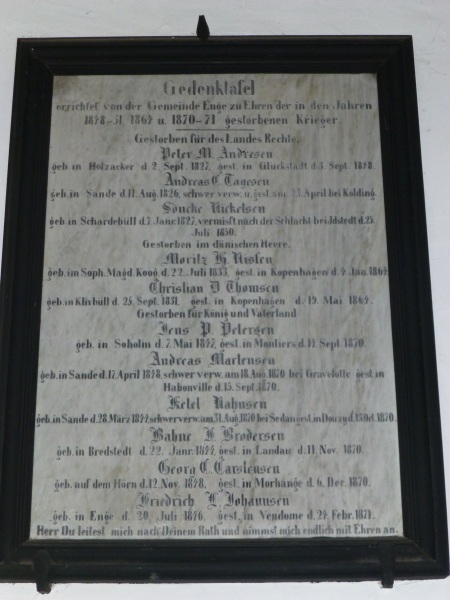 Gedenktafel
errichtet von der Gemeinde Enge zu Ehren der in den Jahren
1848-51, 1864 u. 1870-71 gestorbenen Krieger.
Gestorben für des Landes Rechte.
Peter M. Andresen
geb. in Holzacker d. 2. Sept. 1827, gest. in Glückstadt d. 3. Sept. 1848.
Andreas C. Tagesen
geb. in Sande d. 11. Aug. 1826, schwer verw. u. gest. am 23. April bei Kolding.
Söncke Nickelsen
geb. in Schardebüll d. 7. Janr. 1827, vermißt nach der Schlacht bei Idstedt d. 25.
Juli 1850.
Gestorben im dänischen Heere.
Moritz H. Nissen
geb. im Soph. Magd. Koog d. 22. Juli 1833, gest. in Kopenhagen d. 4. Jan. 1864.
Christian D. Thomsen
geb. in Klixbüll d. 25. Sept. 1831, gest. in Kopenhagen d. 19. Mai 1864.
Gestorben für König und Vaterland
Jens P. Petersen
geb. in Soholm d. 7. Mai 1847, gest. in Moutiers d. 14. Sept. 1870.
Andreas Martensen
geb. in Sande d. 17. April 1848, schwer verw. am 18. Aug. 1870 bei Gravelotte gest. in
Habonville d. 15. Sept. 1870.
Ketel Nahnsen
geb. in Sande d. 28. März 1844, schwer verw. am 31. Aug. 1870 bei Sedan gest. in Douzy d. 13. Od. 1870.
Bahne F. Brodersen
geb. in Bredstedt d. 22. Janr. 1844, gest. in Landau d. 11. Nov. 1870.
Georg C. Carstensen
geb. auf dem Hörn d. 12. Nov. 1848, gest. in Morhange d. 6. Dec. 1870.
Friedrich L. Johannsen
geb. in Enge d. 20. Juli 1846, gest. in Vendome d. 24. Febr. 1871.
Herr Du leitest mich nach Deinem Rath und nimmst mich endlich mit Ehren an.